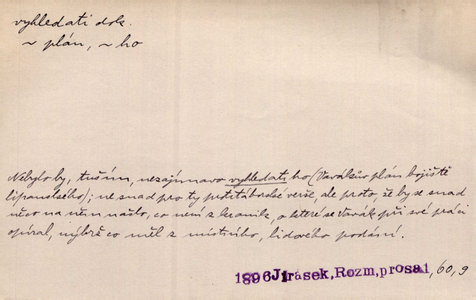 vyhledati dok.
~ plán, ~ ho
Nebylo by, tuším, nezajímavo vyhledati ho (Vavákův plán bojiště
lipanského); ne snad pro ty protitáborské verše, ale proto, že by se snad
něco na něm našlo, co není z kronik, o které se Vavák při své práci
opíral, nýbrž co měl z místního, lidového podání.
1896 Jirásek, Rozm, prosa 1, 60, 9